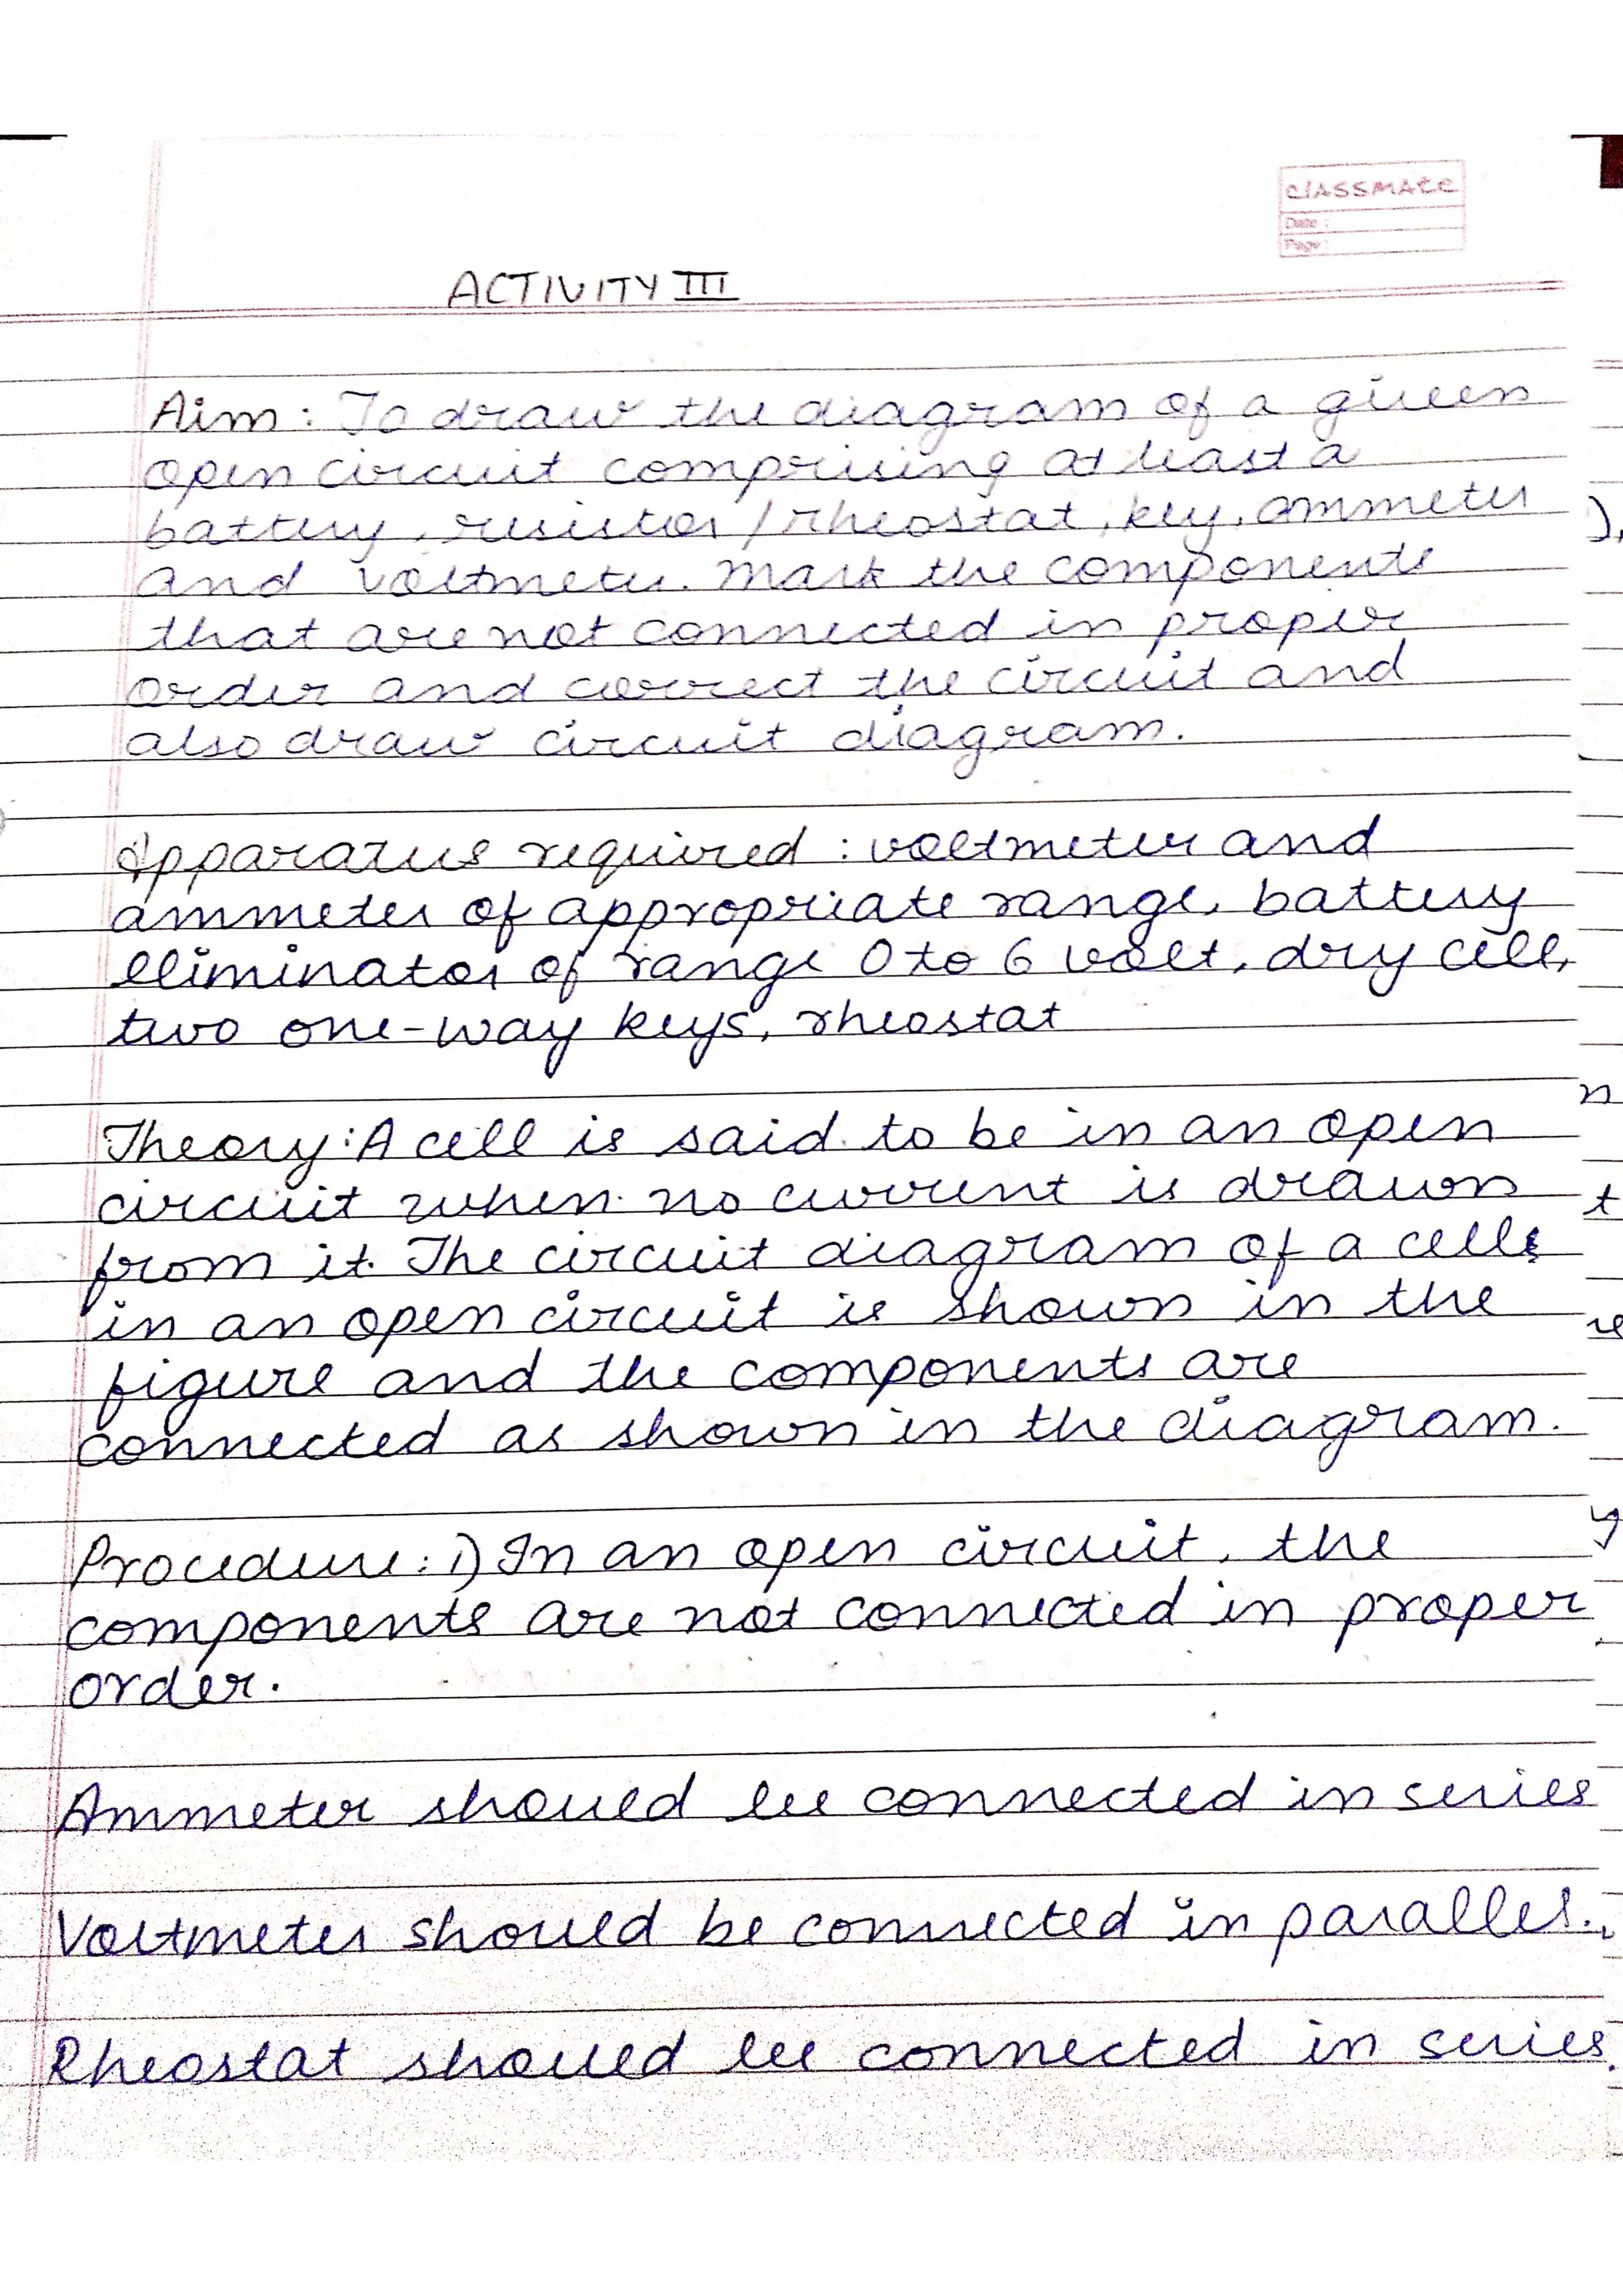 classmate
Date :
Page :
ACTIVITY III
Aim : To draw the diagram of a given
open circuit comprising at least a
battery, resistor / rheostat, key, ammeter
and voltmeter. Mark the components
that are not connected in proper
order and correct the circuit and
also draw circuit diagram.
Apparatus required : voltmeter and
ammeter of appropriate range, battery
eliminator of range 0 to 6 volt, dry cell,
two one-way keys, rheostat
Theory : A cell is said to be in an open
circuit when no current is drawn
from it. The circuit diagram of a cell
in an open circuit is shown in the
figure and the components are
connected as shown in the diagram.
Procedure : 1) In an open circuit, the
components are not connected in proper
order.
Ammeter should be connected in series
Voltmeter should be connected in parallel.
Rheostat should be connected in series.